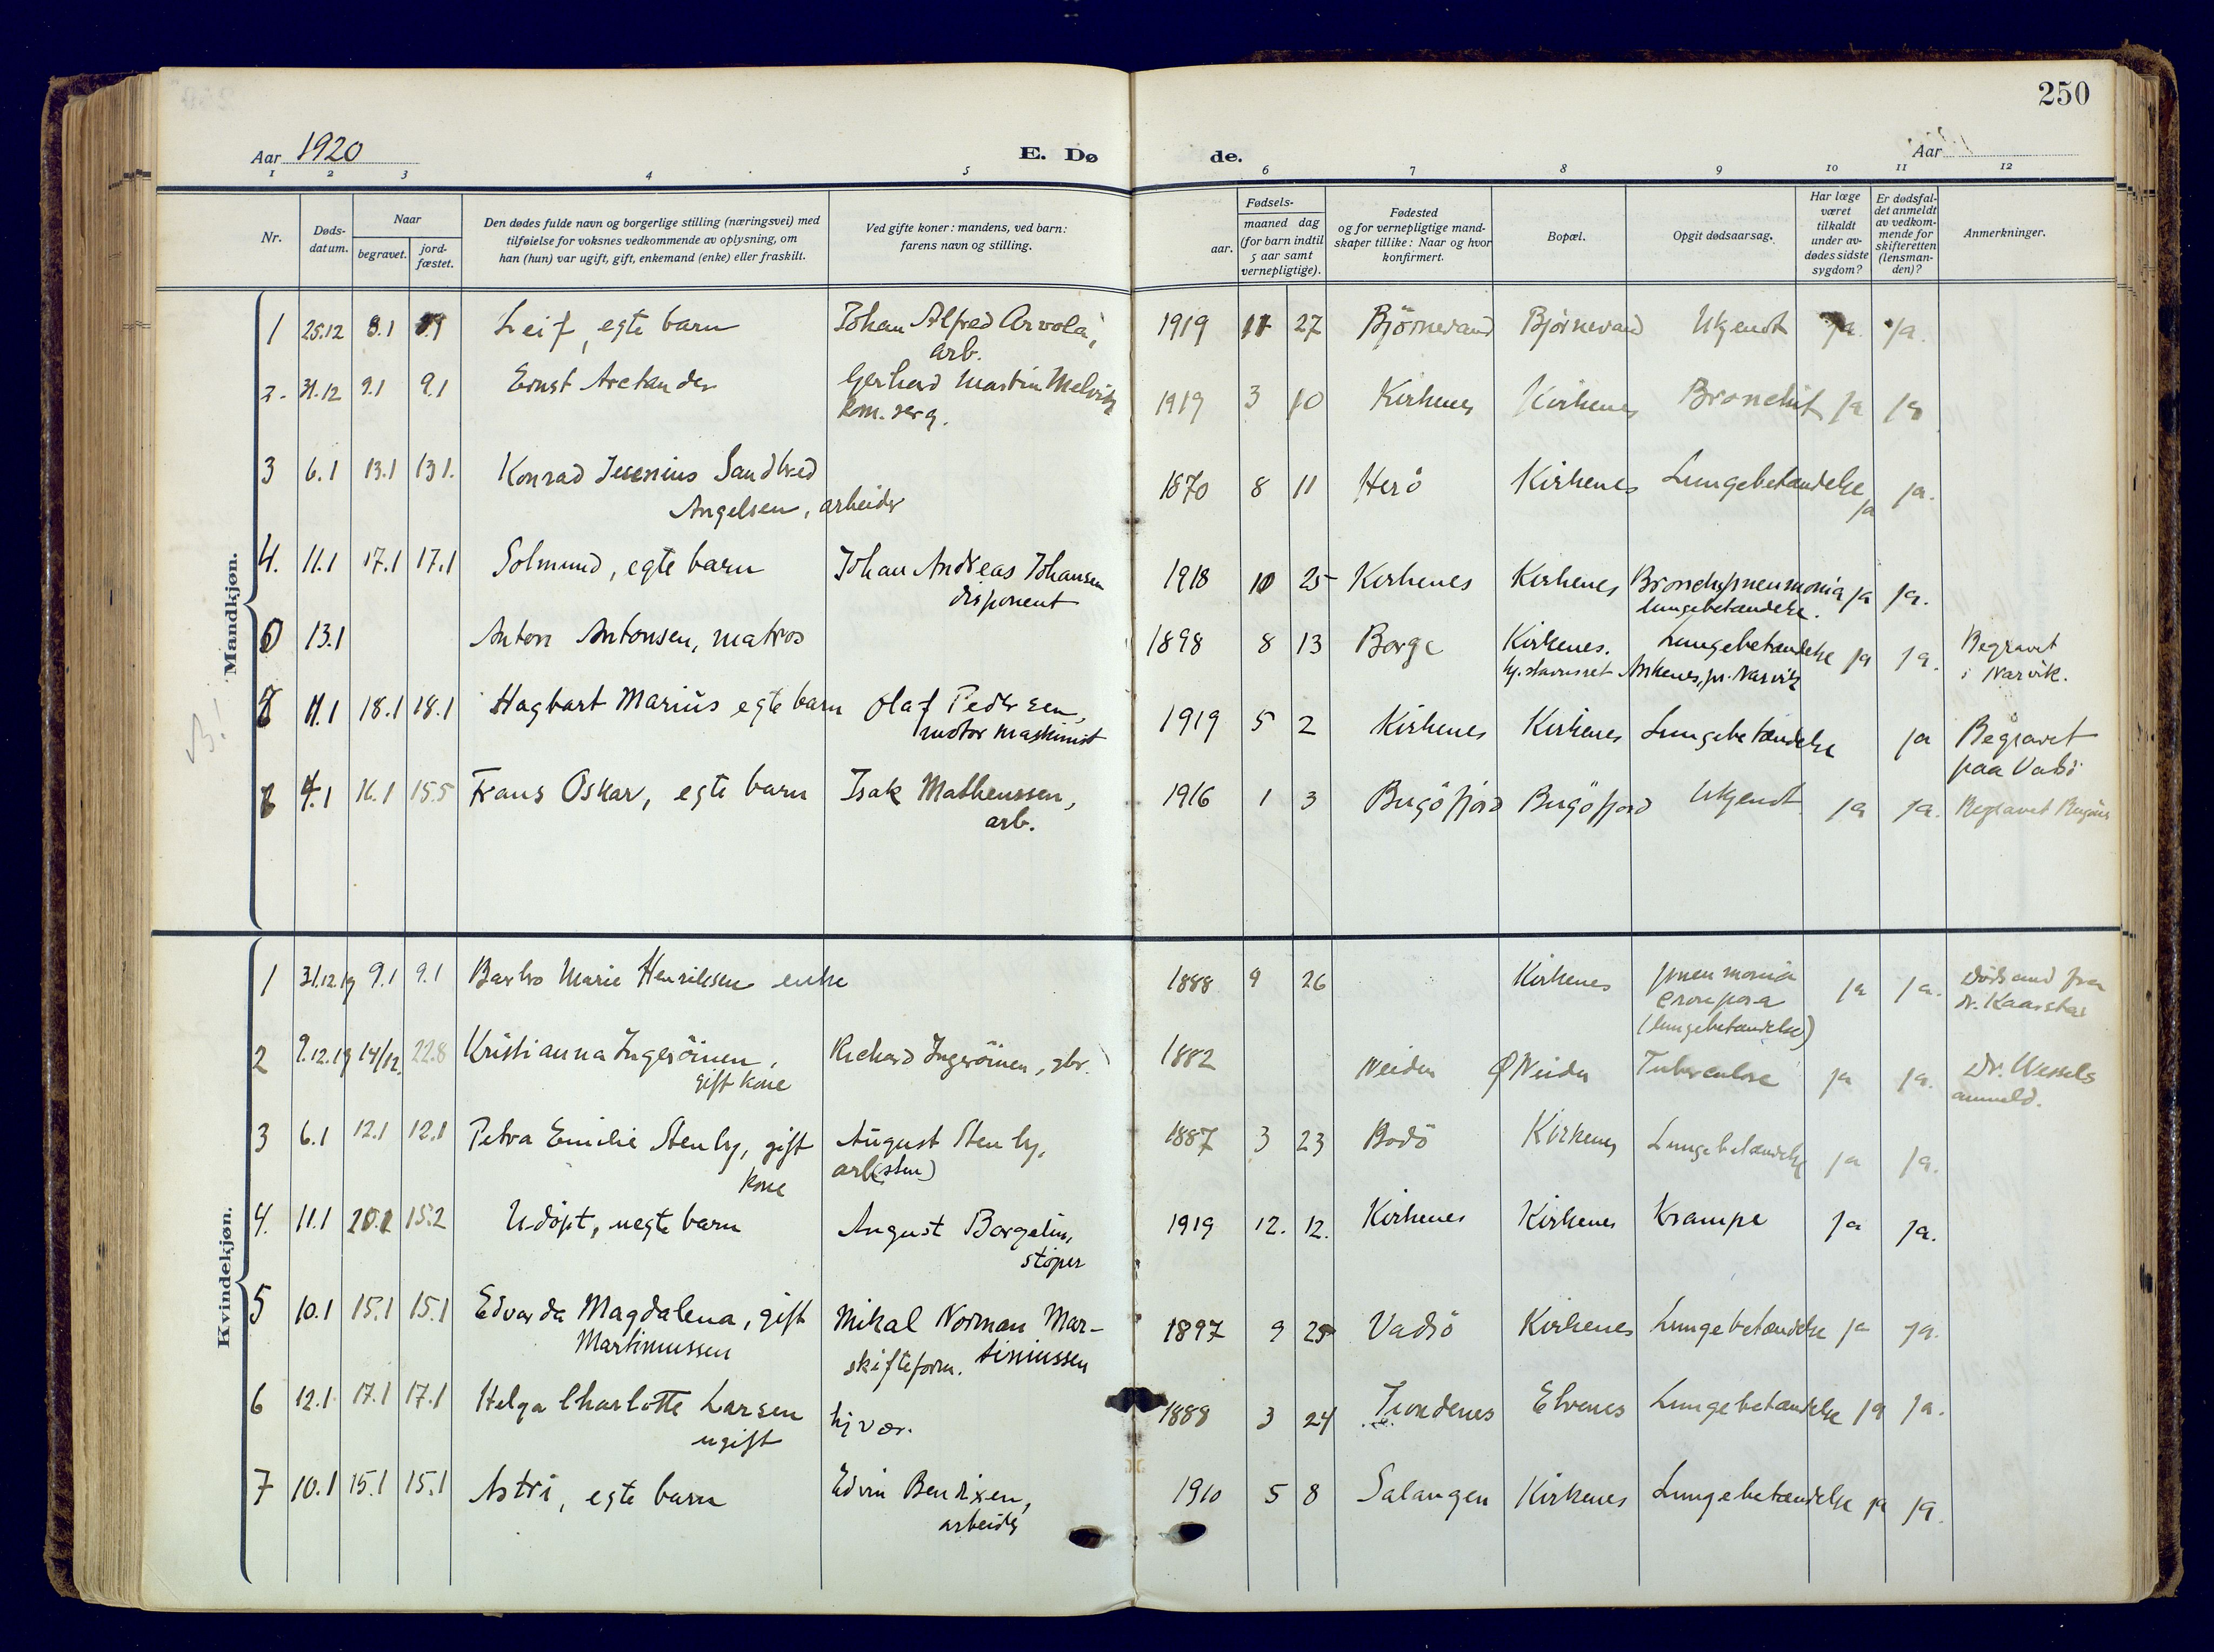 250
Aar 1920
E. Dø de.
Aar
1 2 3 4 5 6 7 8 9 10 11 12
Nr.
Døds-
datum.
Naar
begravet.
jord-
fæstet.
Den dødes fulde navn og borgerlige stilling (næringsvei) med
tilføielse for voksnes vedkommende av oplysning, om
han (hun) var ugift, gift, enkemand (enke) eller fraskilt.
Ved gifte koner: mandens, ved barn:
farens navn og stilling.
Fødsels-
aar.
maaned dag
(for barn indtil
5 aar samt
vernepligtige).
Fødested
og for vernepligtige mand-
skaper tillike: Naar og hvor
konfirmert.
Bopæl.
Opgit dødsaarsag.
Har læge
været
tilkaldt
under av-
dødes sidste
sygdom?
Er dødsfal-
det anmeldt
av vedkom-
mende for
skifteretten
(lensman-
den)?
Anmerkninger.
Mandkjøn.
1 25.12 9.1 Leif, egte barn Johan Alfred Arvola, 1919 11 27 Björnevand Björnevand Ukjendt ja. ja.
arb.
2. 31.12 9.1 9.1 Ernst Arctander Gerhard Martin 1919 3 10 Kirkenes Kirkenes Bronchit ja ja
3 6.1 13.1 13.1. Konrad Sandbred 1870 8 11 Herö Kirkenes Lungebetændelse ja ja.
Angelsen, arbeider
4. 11.1 17.1 17.1 Solmund, egte barn Johan Andreas Johansen 1918 10 25 Kirkenes Kirkenes Bronchypneumonia ja ja.
disponent lungebetændelse.
13.1 Anton Antonsen, matros 1898 8 13 Borge Kirkenes. Lungebetændelse ja ja. Begravet
Ankenes, pr. Narvik i Narvik.
11.1 18.1 18.1 Hagbart Marius egte barn Olaf Pedersen, 1919 5 2 Kirkenes Kirkenes Lungebetændelse ja Begravet
motormaskinist paa Vadsö
4.1 16.1 15.5 Frans Oskar, egte barn Isak Matheussen, 1916 1 3 Bugöfjord Bugöfjord Ukjendt ja ja. Begravet Bugönes
arb.
Kvindekjøn.
1 31.12.19 9.1 9.1 Barbro Marie Henriksen enke 1888 9 26 Kirkenes pneumonia ja ja. Dödsanm fra
crouposa dr. Kaarstad
(lungebetændelse)
2 9.12.19 14/12. 22.8 Kristianna Ingeröinen, Richard Ingeröinen, gbr. 1882 Neiden Ø Neiden Tuberculose ja ja. Dr. Wessels
gift kone anmeld.
3 6.1 12.1 12.1 Petra Emilie Stenby, gift August Stenby, 1887 3 23 Bodö Kirkenes Lungebetændelse ja ja.
kone arb.
4. 11.1 20.1 15.2 Udöpt, uegte barn August Borgelin, 1919 12. 12. Kirkenes Kirkenes Krampe ja ja.
stöper
5 10.1 15.1 15.1 Edvarda Magdalena, gift Mikal Norman Mar- 1897 9 25 Vadsö Kirkenes Lungebetændelse ja ja.
Martinussen skifteform. tinussen
6 12.1 17.1 17.1 Helga Charlotte Larsen hjvær. 1889 3 24 Trondenes Elvenes Lungebetændelse ja ja.
ugift
7 10.1 15.1 15.1 Astri, egte barn Edvin Bendixen, 1910 5 8 Salangen Kirkenes Lungebetændelse ja ja.
arbeider